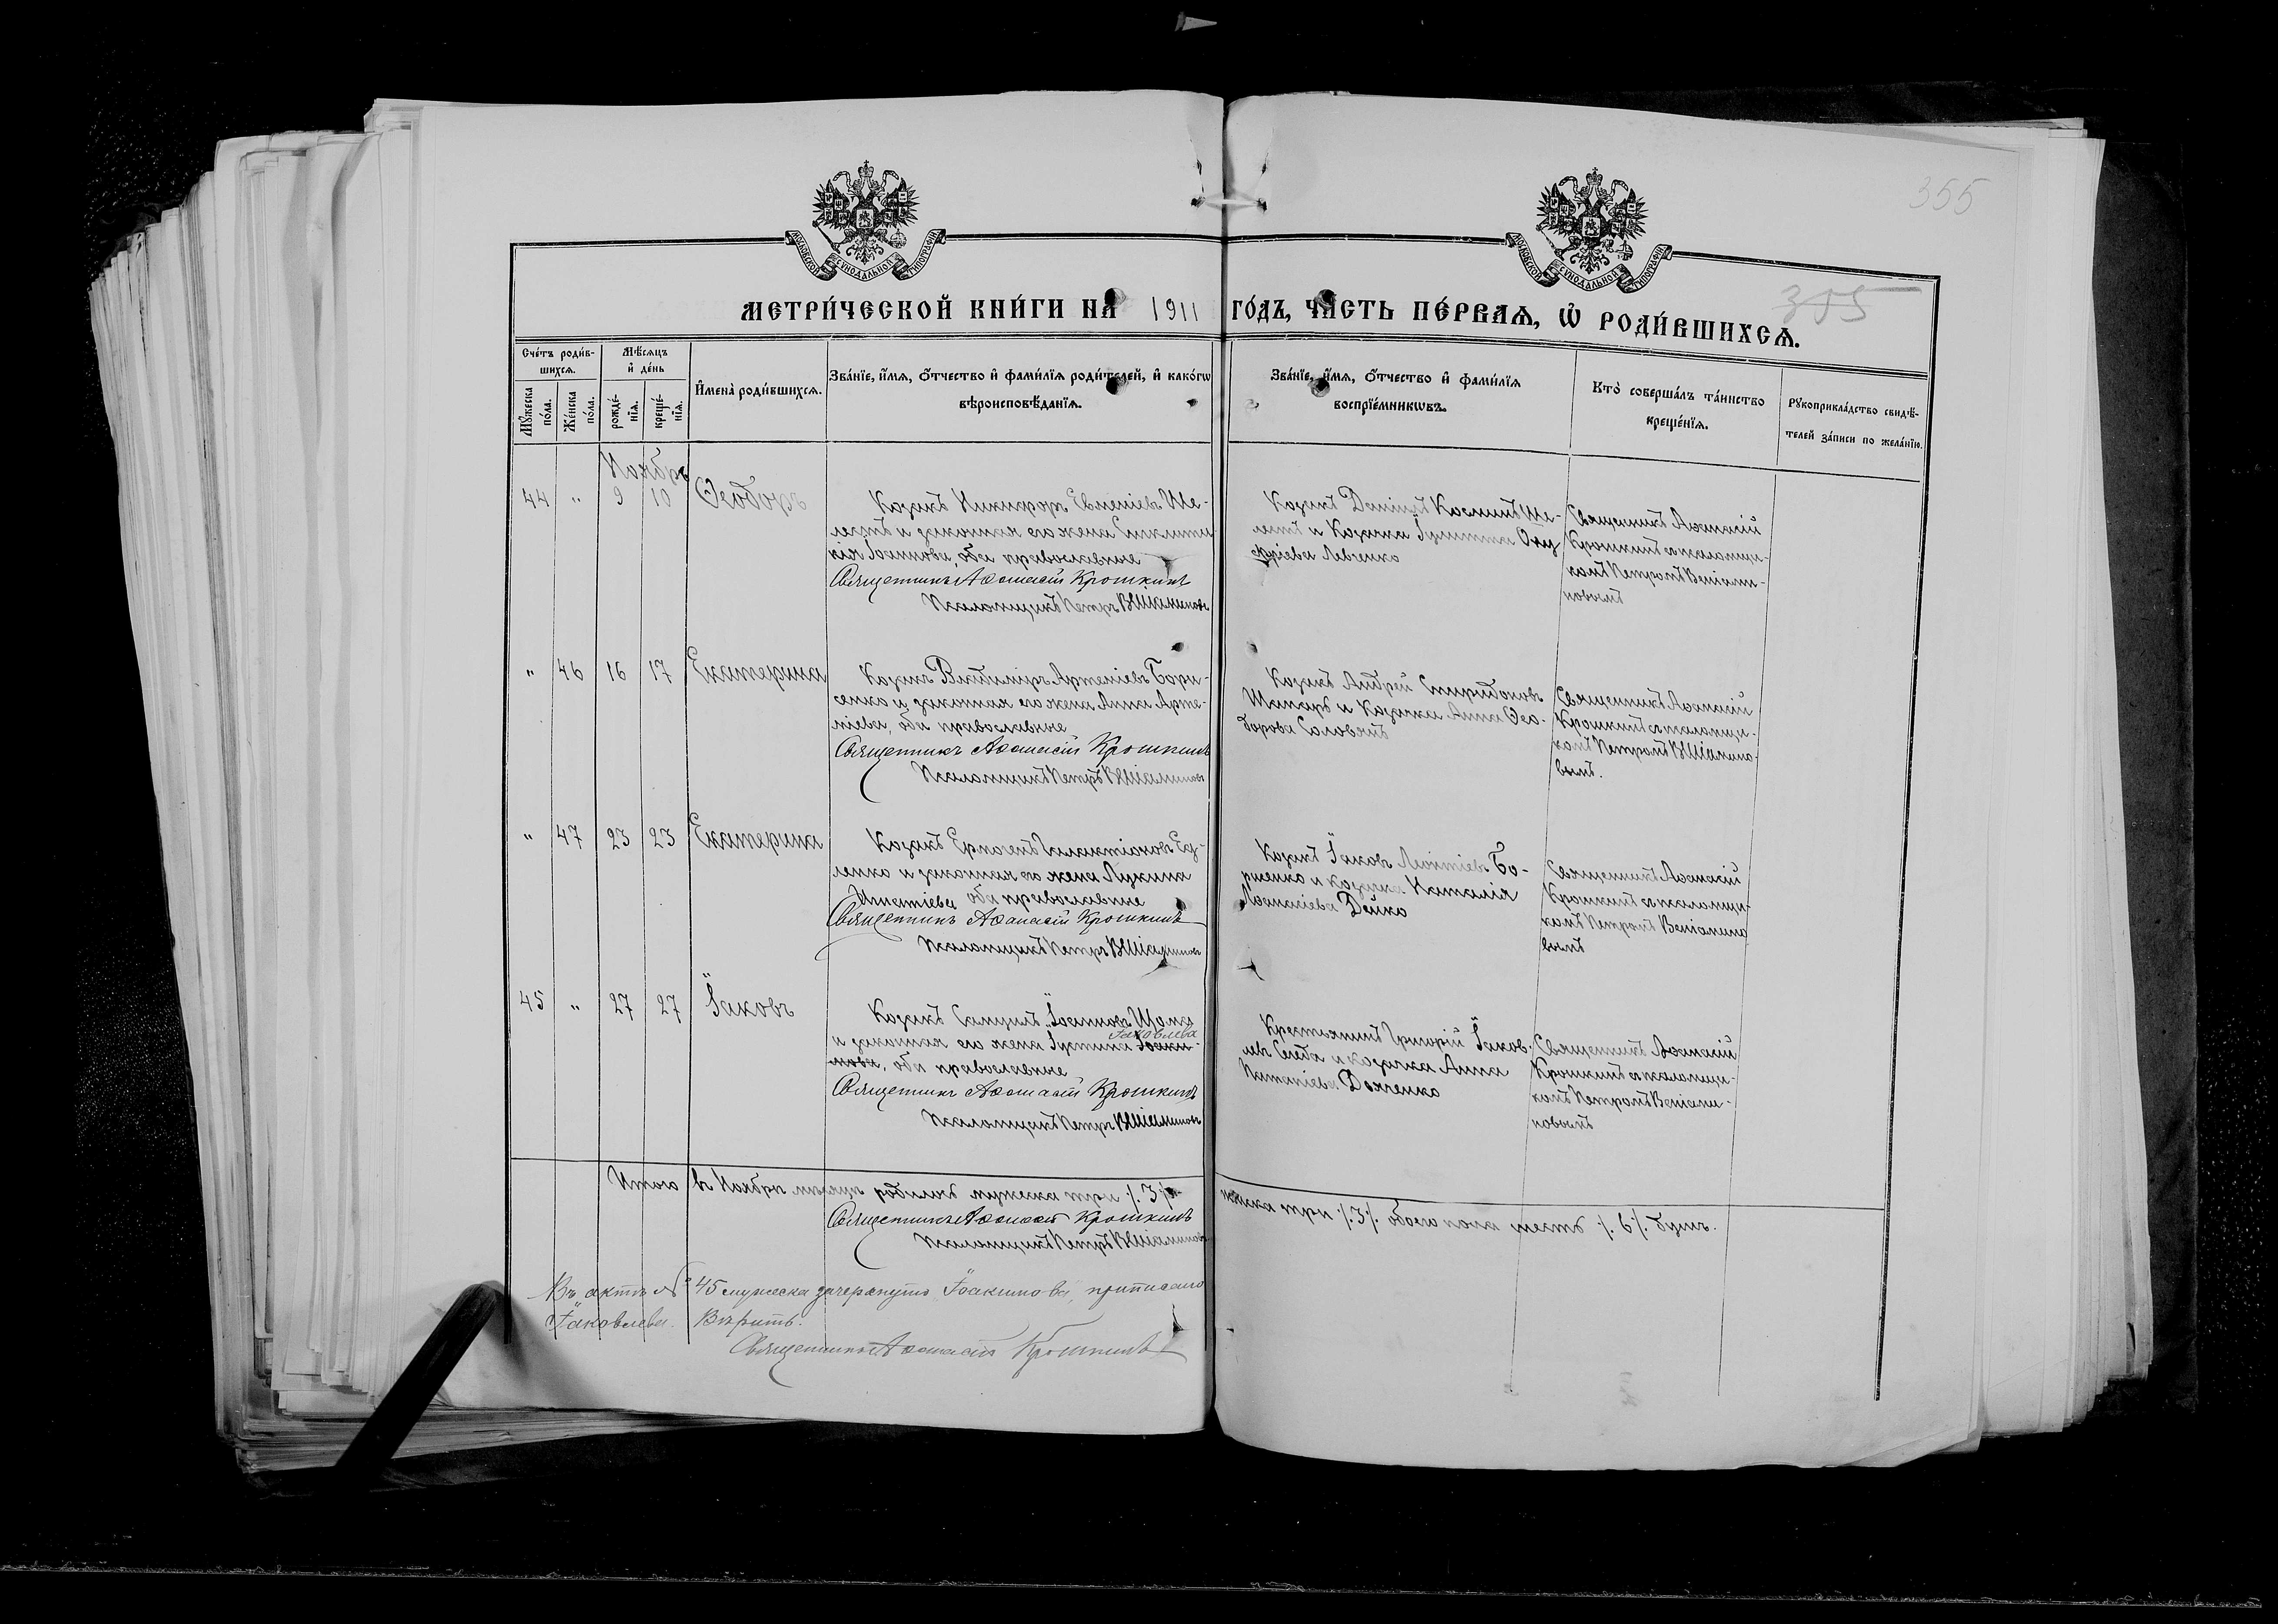 355
МОСКОВСКОЙ СѴНОДАЛЬНОЙ ТИПОГРАФІИ
МОСКОВСКОЙ СѴНОДАЛЬНОЙ ТИПОГРАФІИ
МЕТРИ́ЧЕСКОЙ КНИ́ГИ НА 1911 ГО́ДЪ, ЧА́СТЬ ПЕ́РВАЯ, Ѡ҆ РОДИ́ВШИХСЯ.
355
Сче́тъ роди́в-
шихся.
Мꙋ́жеска по́ла.
Же́нска по́ла.
Мѣ́сяцъ
и҆ де́нь
рожде́-
нїя.
креще́-
нїя.
И҆мена̀ роди́вшихся.
Зва́нїе, и҆́мя, ѻ҆́тчество и҆ фами́лїя роди́телей, и҆ како́гѡ
вѣроисповѣ́данїя.
Зва́нїе, и҆́мя, ѻ҆́тчество и҆ фами́лїя
воспрїе́мникѡвъ.
Кто̀ соверша́лъ та́инство
креще́нїя.
Рꙋкоприкла́дство свидѣ́-
телей за́писи по жела́нїю.
Ноябрь
44 " 9 10 Ѳеодоръ
Козакъ Никифоръ Евменіевъ Ше-
лестъ и законная его жена Синклити
кія Іоаннова, оба православные
Священникъ Аѳанасій Крошкинъ
Псаломщикъ Петръ Веніаминовъ
Козакъ Даніилъ Косминъ Ше-
лестъ и Козачка Іулитта
Левченко
Священникъ Аѳанасій
Крошкинъ съ псаломщи-
комъ Петромъ Веніами-
новымъ
" 46 16 17 Екатерина
Козакъ Владиміръ Артеміевъ Бори-
сенко и законная его жена Анна Арте-
міева, оба православные
Священникъ Аѳанасій Крошкинъ
Псаломщикъ Петръ Веніаминовъ
Козакъ Андрей Спиридоновъ
и Козачка Анна Ѳео-
дорова
Священникъ Аѳанасій
Крошкинъ съ псаломщи-
комъ Петромъ Веніамино-
вымъ.
" 47 23 23 Екатерина
Козакъ Ермолай Галактіоновъ
ленко и законная его жена Лукина
Игнатіева оба православные
Священникъ Аѳанасій Крошкинъ
Псаломщикъ Петръ Веніаминовъ
Козакъ Іаковъ Леонтіевъ Бо-
рисенко и козачка Наталія
Аѳанасіева Дейко
Священникъ Аѳанасій
Крошкинъ съ псаломщи-
комъ Петромъ Веніамино
вымъ
45 " 27 27 Іаковъ
Козакъ Самуилъ Іоанновъ
Іаковлева
и законная его жена Іустина Іоаки-
мова, оба православные
Священникъ Аѳанасій Крошкинъ
Псаломщикъ Петръ Веніаминовъ
Крестьянинъ Григорій Іаков-
левъ Середа и козачка Анна
Игнатіева Донченко
Священникъ Аѳанасій
Крошкинъ съ псаломщи-
комъ Петромъ Веніами-
новымъ
Итого въ Ноябрѣ мѣсяцѣ родилось мужеска три /.3/. женска три /.3/. обоего пола шесть /.6/. душъ.
Священникъ Аѳанасій Крошкинъ
Псаломщикъ Петръ Веніаминовъ
Въ актѣ № 45 мужеска зачеркнуто Іоакимова, приписано
Іаковлева. Вѣрить.
Священникъ Аѳанасій Крошкинъ